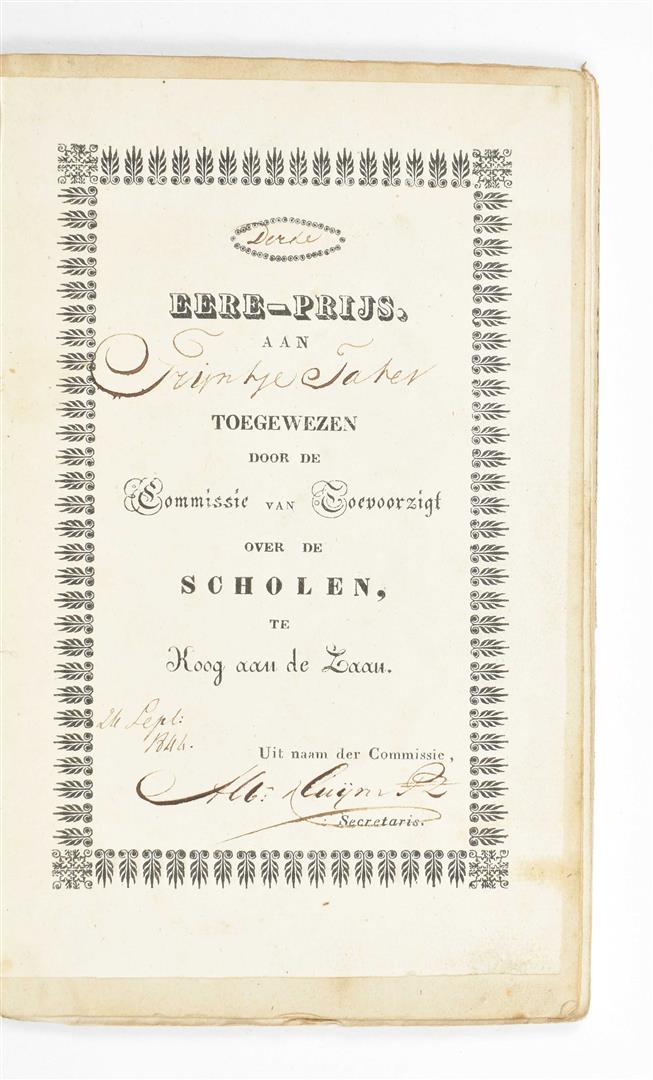 Derde
EERE-PRIJS,
AAN
Trijntje Taker
TOEGEWEZEN
DOOR DE
Commissie VAN Toevoorzigt
OVER DE
SCHOLEN,
TE
Koog aan de Zaan.
24 Sept:
1844.
Uit naam der Commissie,
Alb:
Secretaris.